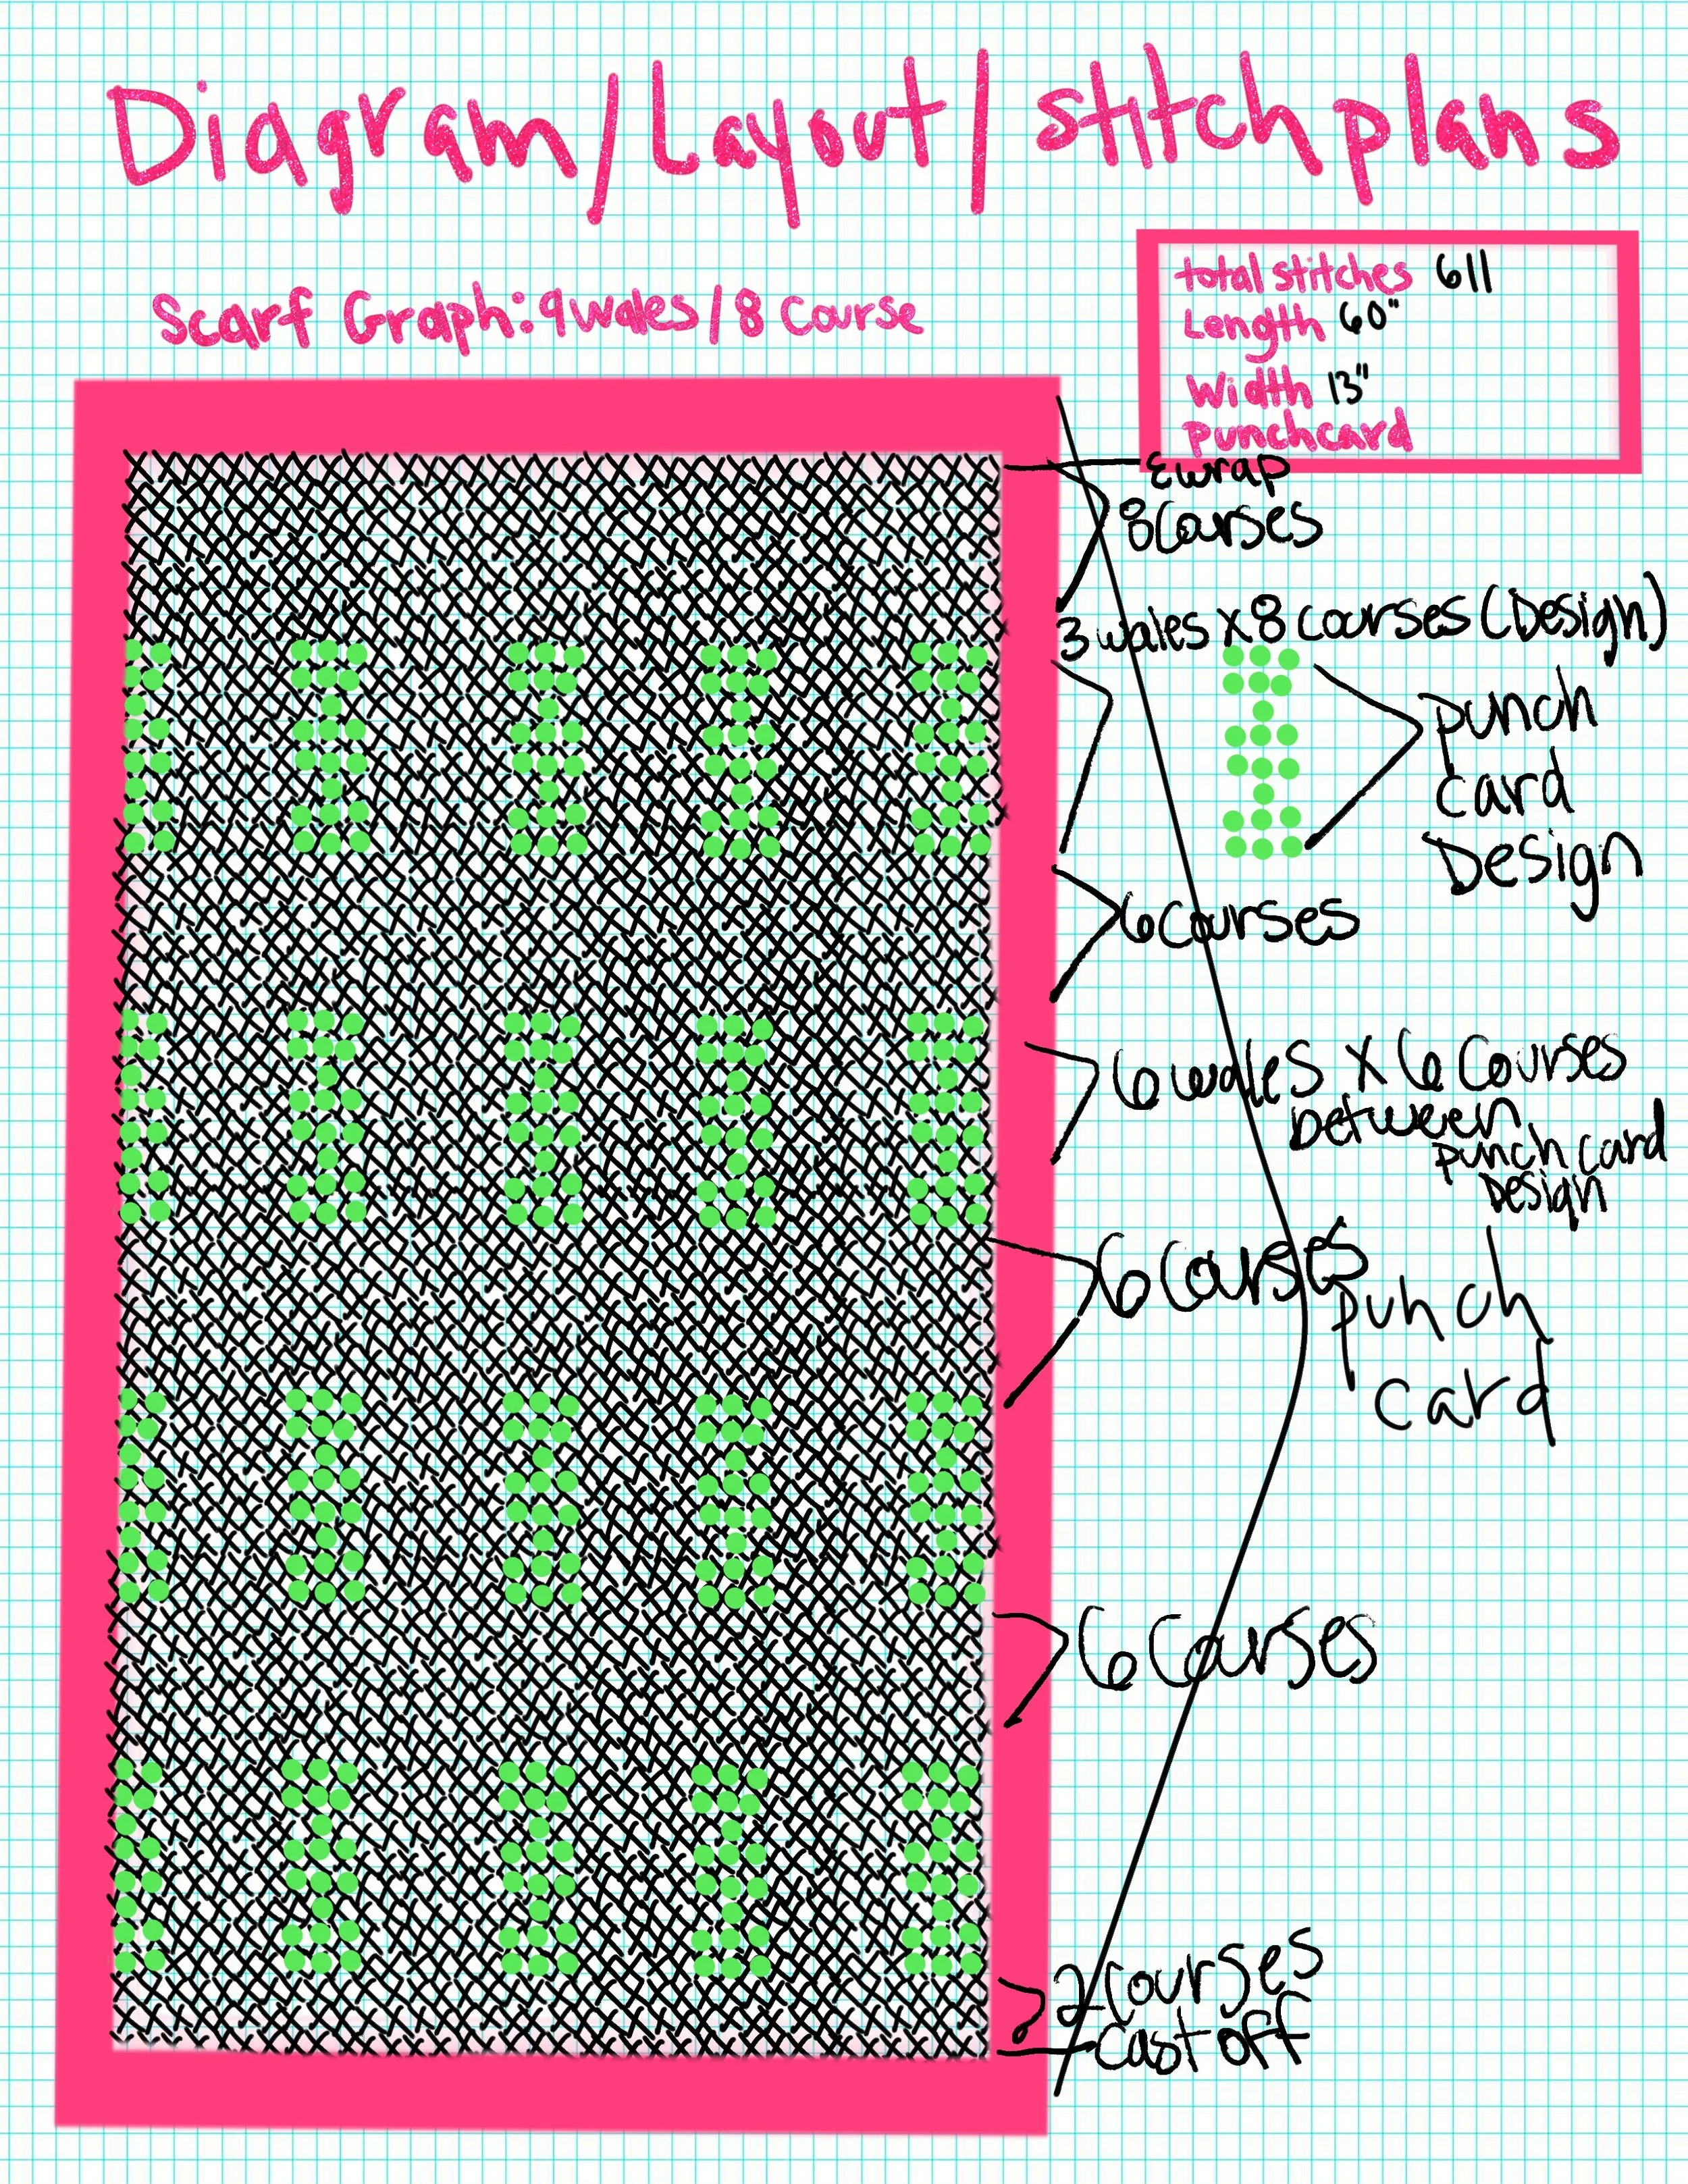 Diagram/Layout/stitch plans
Scarf Graph: 9 wales/8 course
total stitches 611
Length 60"
Width 13"
punchcard
Ewrap
8 Courses
3 wales x 8 courses (Design)
punch
card
Design
6 courses
6 wales x 6 Courses
between
punch card
Design
6 Courses
punch
card
6 Courses
2 courses
cast off